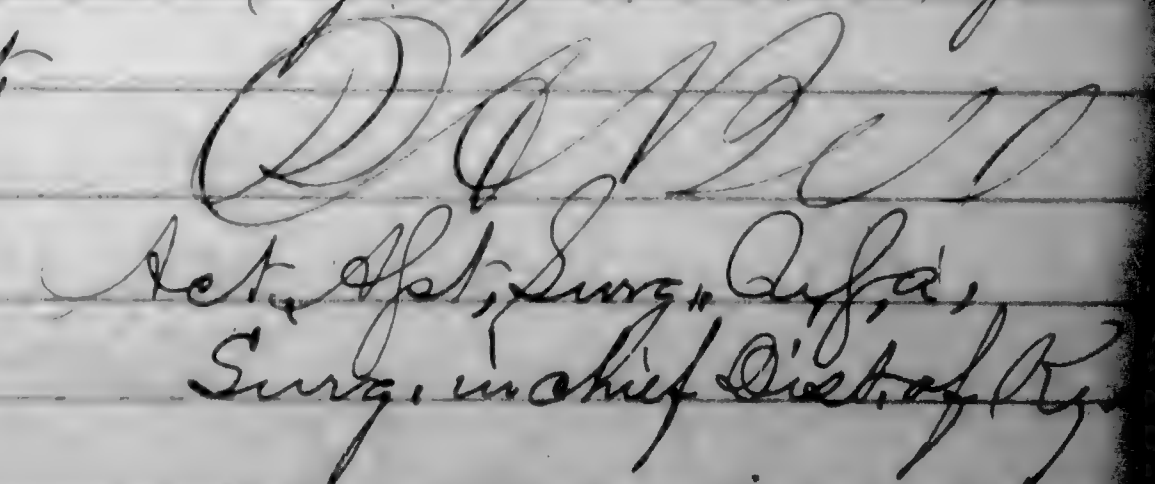 R A Bell
Act. Asst, Surg., U.S.A.,
Surg. in chief Dist. of Ky.